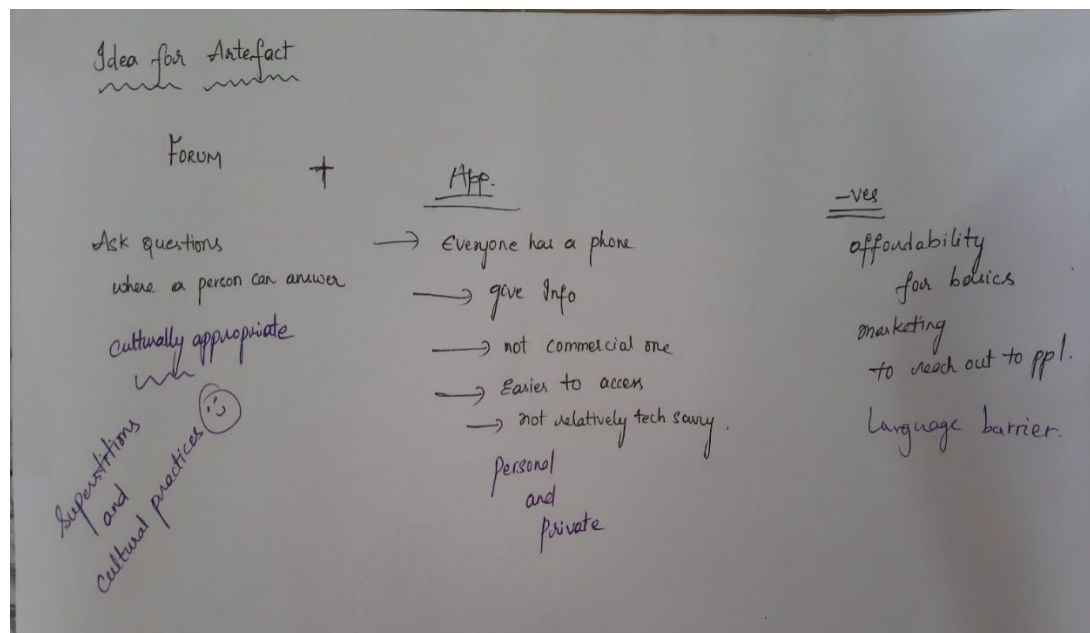 Idea for Artefact
FORUM
+
App.
-ves
Ask questions
where a person can answer
culturally appropriate
Superstitions
and
cultural practices
→ Everyone has a phone
→ give Info
→ not commercial one
→ Easier to access
→ not relatively tech savvy.
Personal
and
Private
affordability
for basics
marketing
to reach out to ppl.
Language barrier.